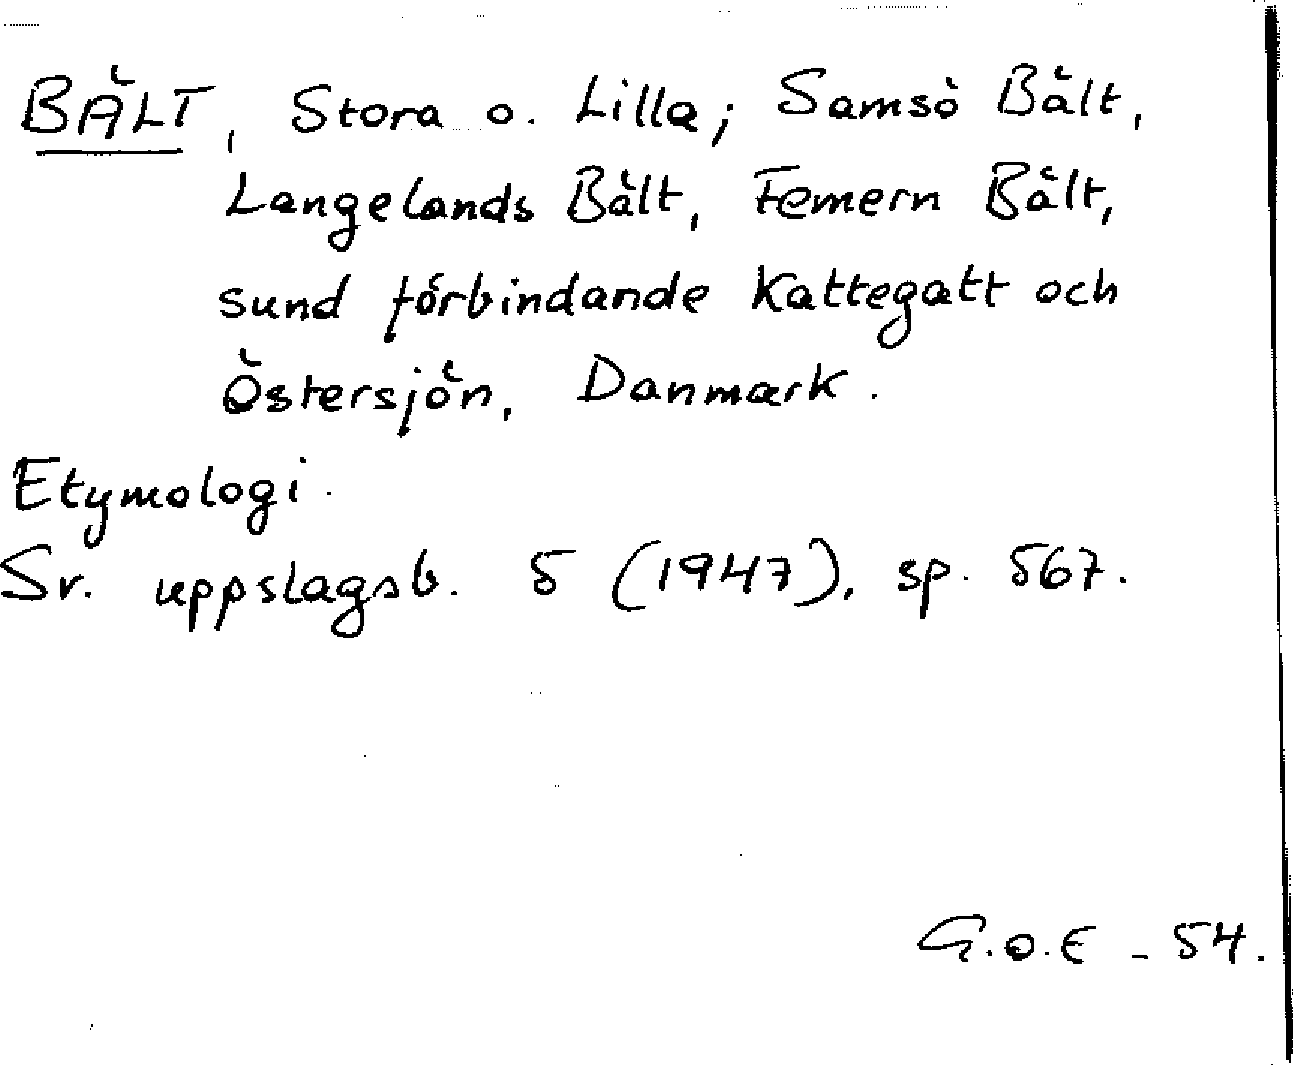 BÄLT, Stora o. Lilla; Samsö Bält,
Langelands Bält, Femern Bält,
sund förbindande Kattegatt och
Östersjön, Danmark.
Etymologi.
Sv. uppslagsb. 5 (1947), sp. 567.
G.O.E - 54.